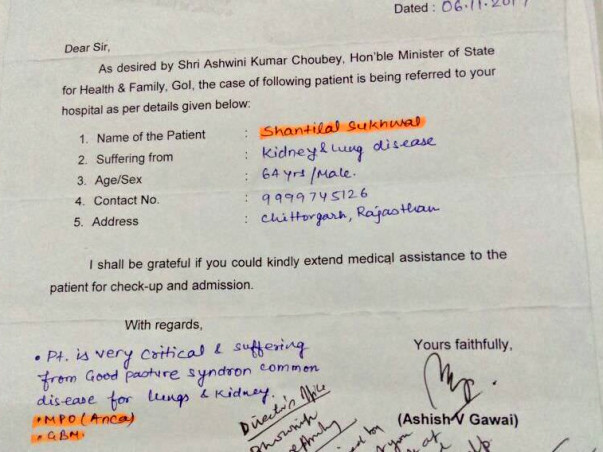 Dated : 06.11.201
Dear Sir,
As desired by Shri Ashwini Kumar Choubey, Hon'ble Minister of State
for Health & Family, GoI, the case of following patient is being referred to your
hospital as per details given below:
1. Name of the Patient : Shantilal Sukhwal
2. Suffering from : Kidney & Lung disease
3. Age/Sex : 64 yrs / Male.
4. Contact No. : 9999745126
5. Address : Chittorgarh, Rajasthan
I shall be grateful if you could kindly extend medical assistance to the
patient for check-up and admission.
With regards,
• Pt. is very Critical & suffering
from Good pasture syndron common
disease for lungs & Kidney.
• MPO (Anca)
• GBM.
Yours faithfully,
(Ashish V Gawai)
Director's Office